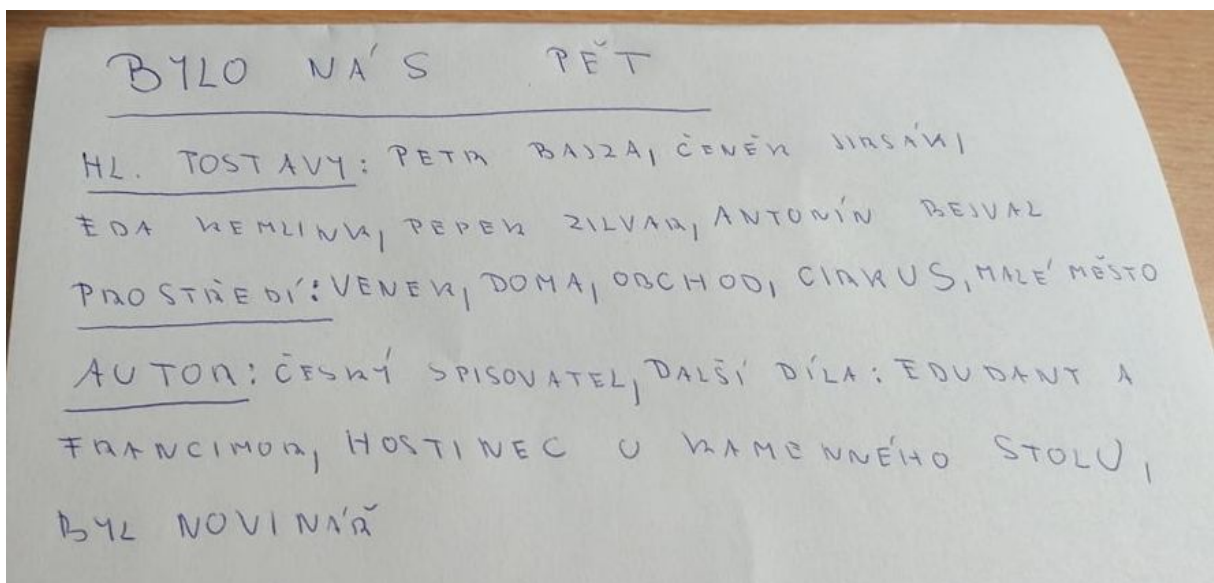 BYLO NÁS PĚT
HL. POSTAVY: PETR BAJZA, ČENĚK JIRSÁK,
EDA KEMLINK, PEPEK ZILVAR, ANTONÍN BEJVAL
PROSTŘEDÍ: VENEK, DOMA, OBCHOD, CIRKUS, MALÉ MĚSTO
AUTOR: ČESKÝ SPISOVATEL, DALŠÍ DÍLA: EDUDANT A
FRANCIMOR, HOSTINEC U KAMENNÉHO STOLU,
BYL NOVINÁŘ